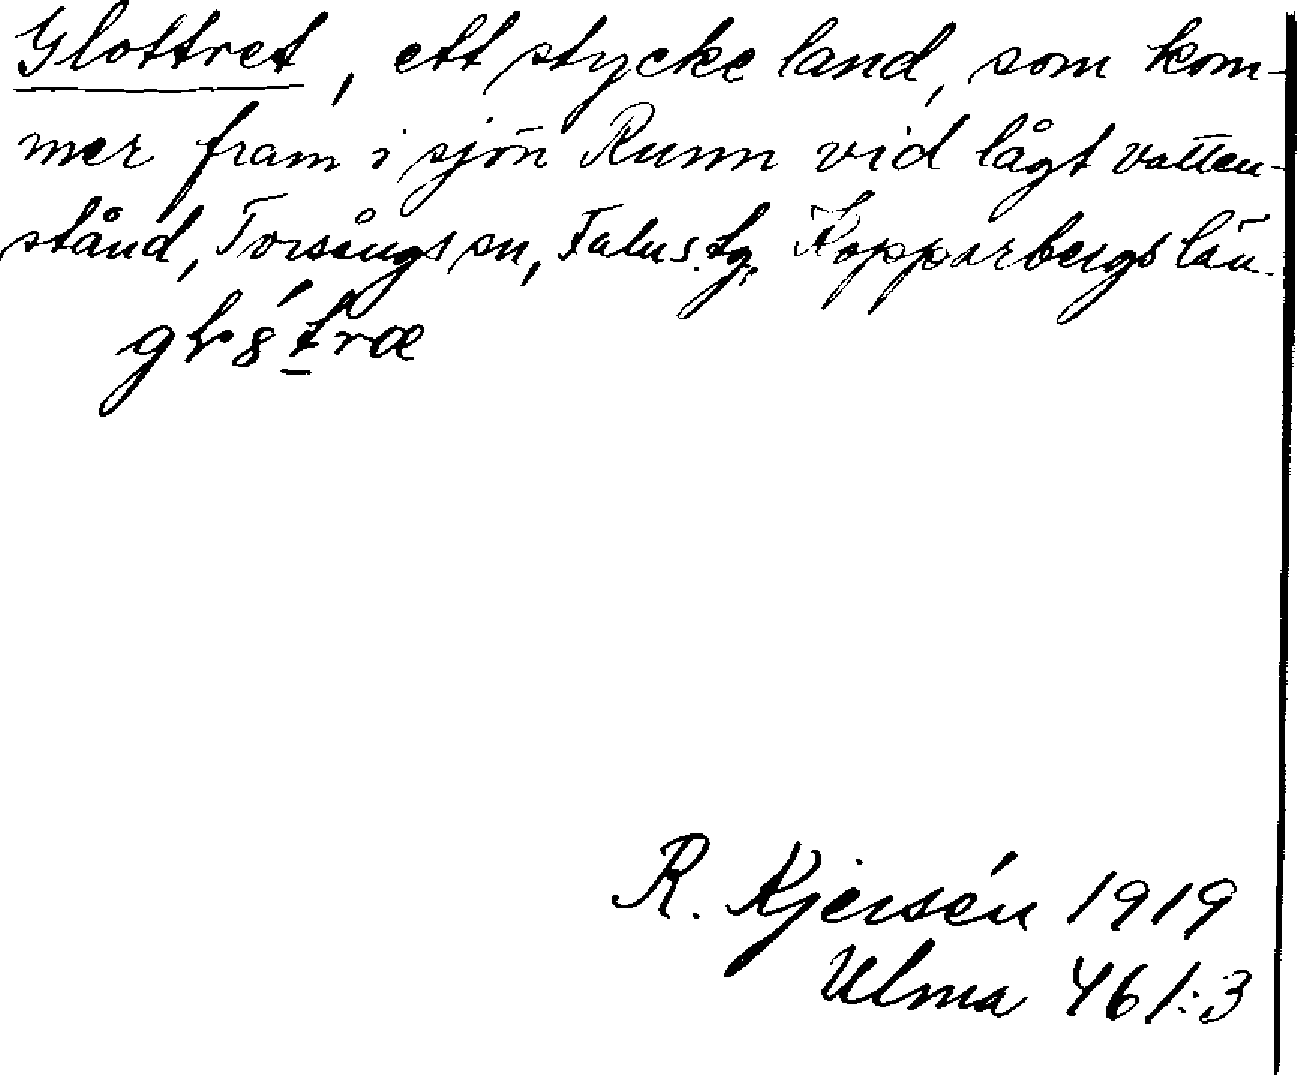 Glottret, ett stycke land, som kom-
mer fram i sjön Runn vid lågt vatten-
stånd, Torsångs sn, Falu s. tg. Kopparbergs län.
R. Kjersén 1919
Ulma 461:3